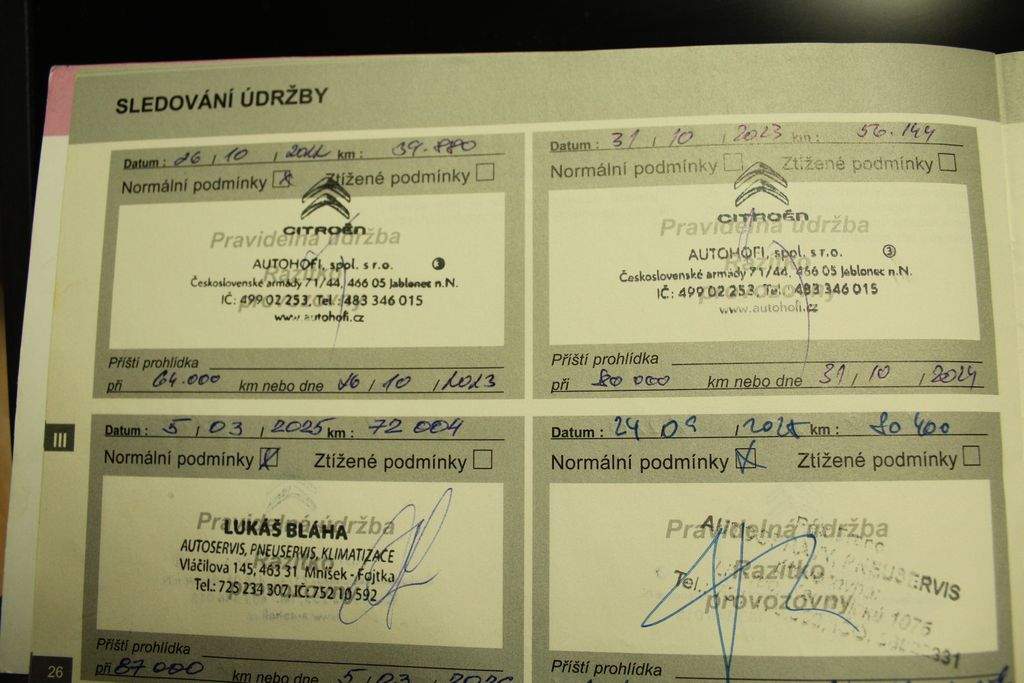 SLEDOVÁNÍ ÚDRŽBY
Datum : 26 / 10 / 2022 km : 39.880
Normální podmínky Ztížené podmínky
CITROËN
Pravidelná údržba
AUTOHOFI, spol. s r.o. 3
Razítko
Československé armády 71/44, 466 05 Jablonec n.N.
IČ: 499 02 253, Tel.: 483 346 015
provozovny
www.autohofi.cz
Příští prohlídka
při 64.000 km nebo dne 26 / 10 / 2023
Datum : 31 / 10 / 2023 km : 56.144
Normální podmínky Ztížené podmínky
CITROËN
Pravidelná údržba
AUTOHOFI, spol. s r.o. 3
Razítko
Československé armády 71/44, 466 05 Jablonec n.N.
IČ: 499 02 253, Tel.: 483 346 015
provozovny
www.autohofi.cz
Příští prohlídka
při 80 000 km nebo dne 31 / 10 / 2024
III
Datum : 5 / 03 / 2025 km : 72 004
Normální podmínky Ztížené podmínky
Pravidelná údržba
LUKÁŠ BLÁHA
AUTOSERVIS, PNEUSERVIS, KLIMATIZACE
Vláčilova 145, 463 31 Mníšek - Fojtka
Tel.: 725 234 307, IČ: 752 10 592
Příští prohlídka
při 87 000 km nebo dne 5 / 03 / 2026
Datum : 24 09 / 2025 km : 80 400
Normální podmínky Ztížené podmínky
Pravidelná údržba
PNEUSERVIS
Razítko
Tel.:
provozovny
1075
Příští prohlídka
26